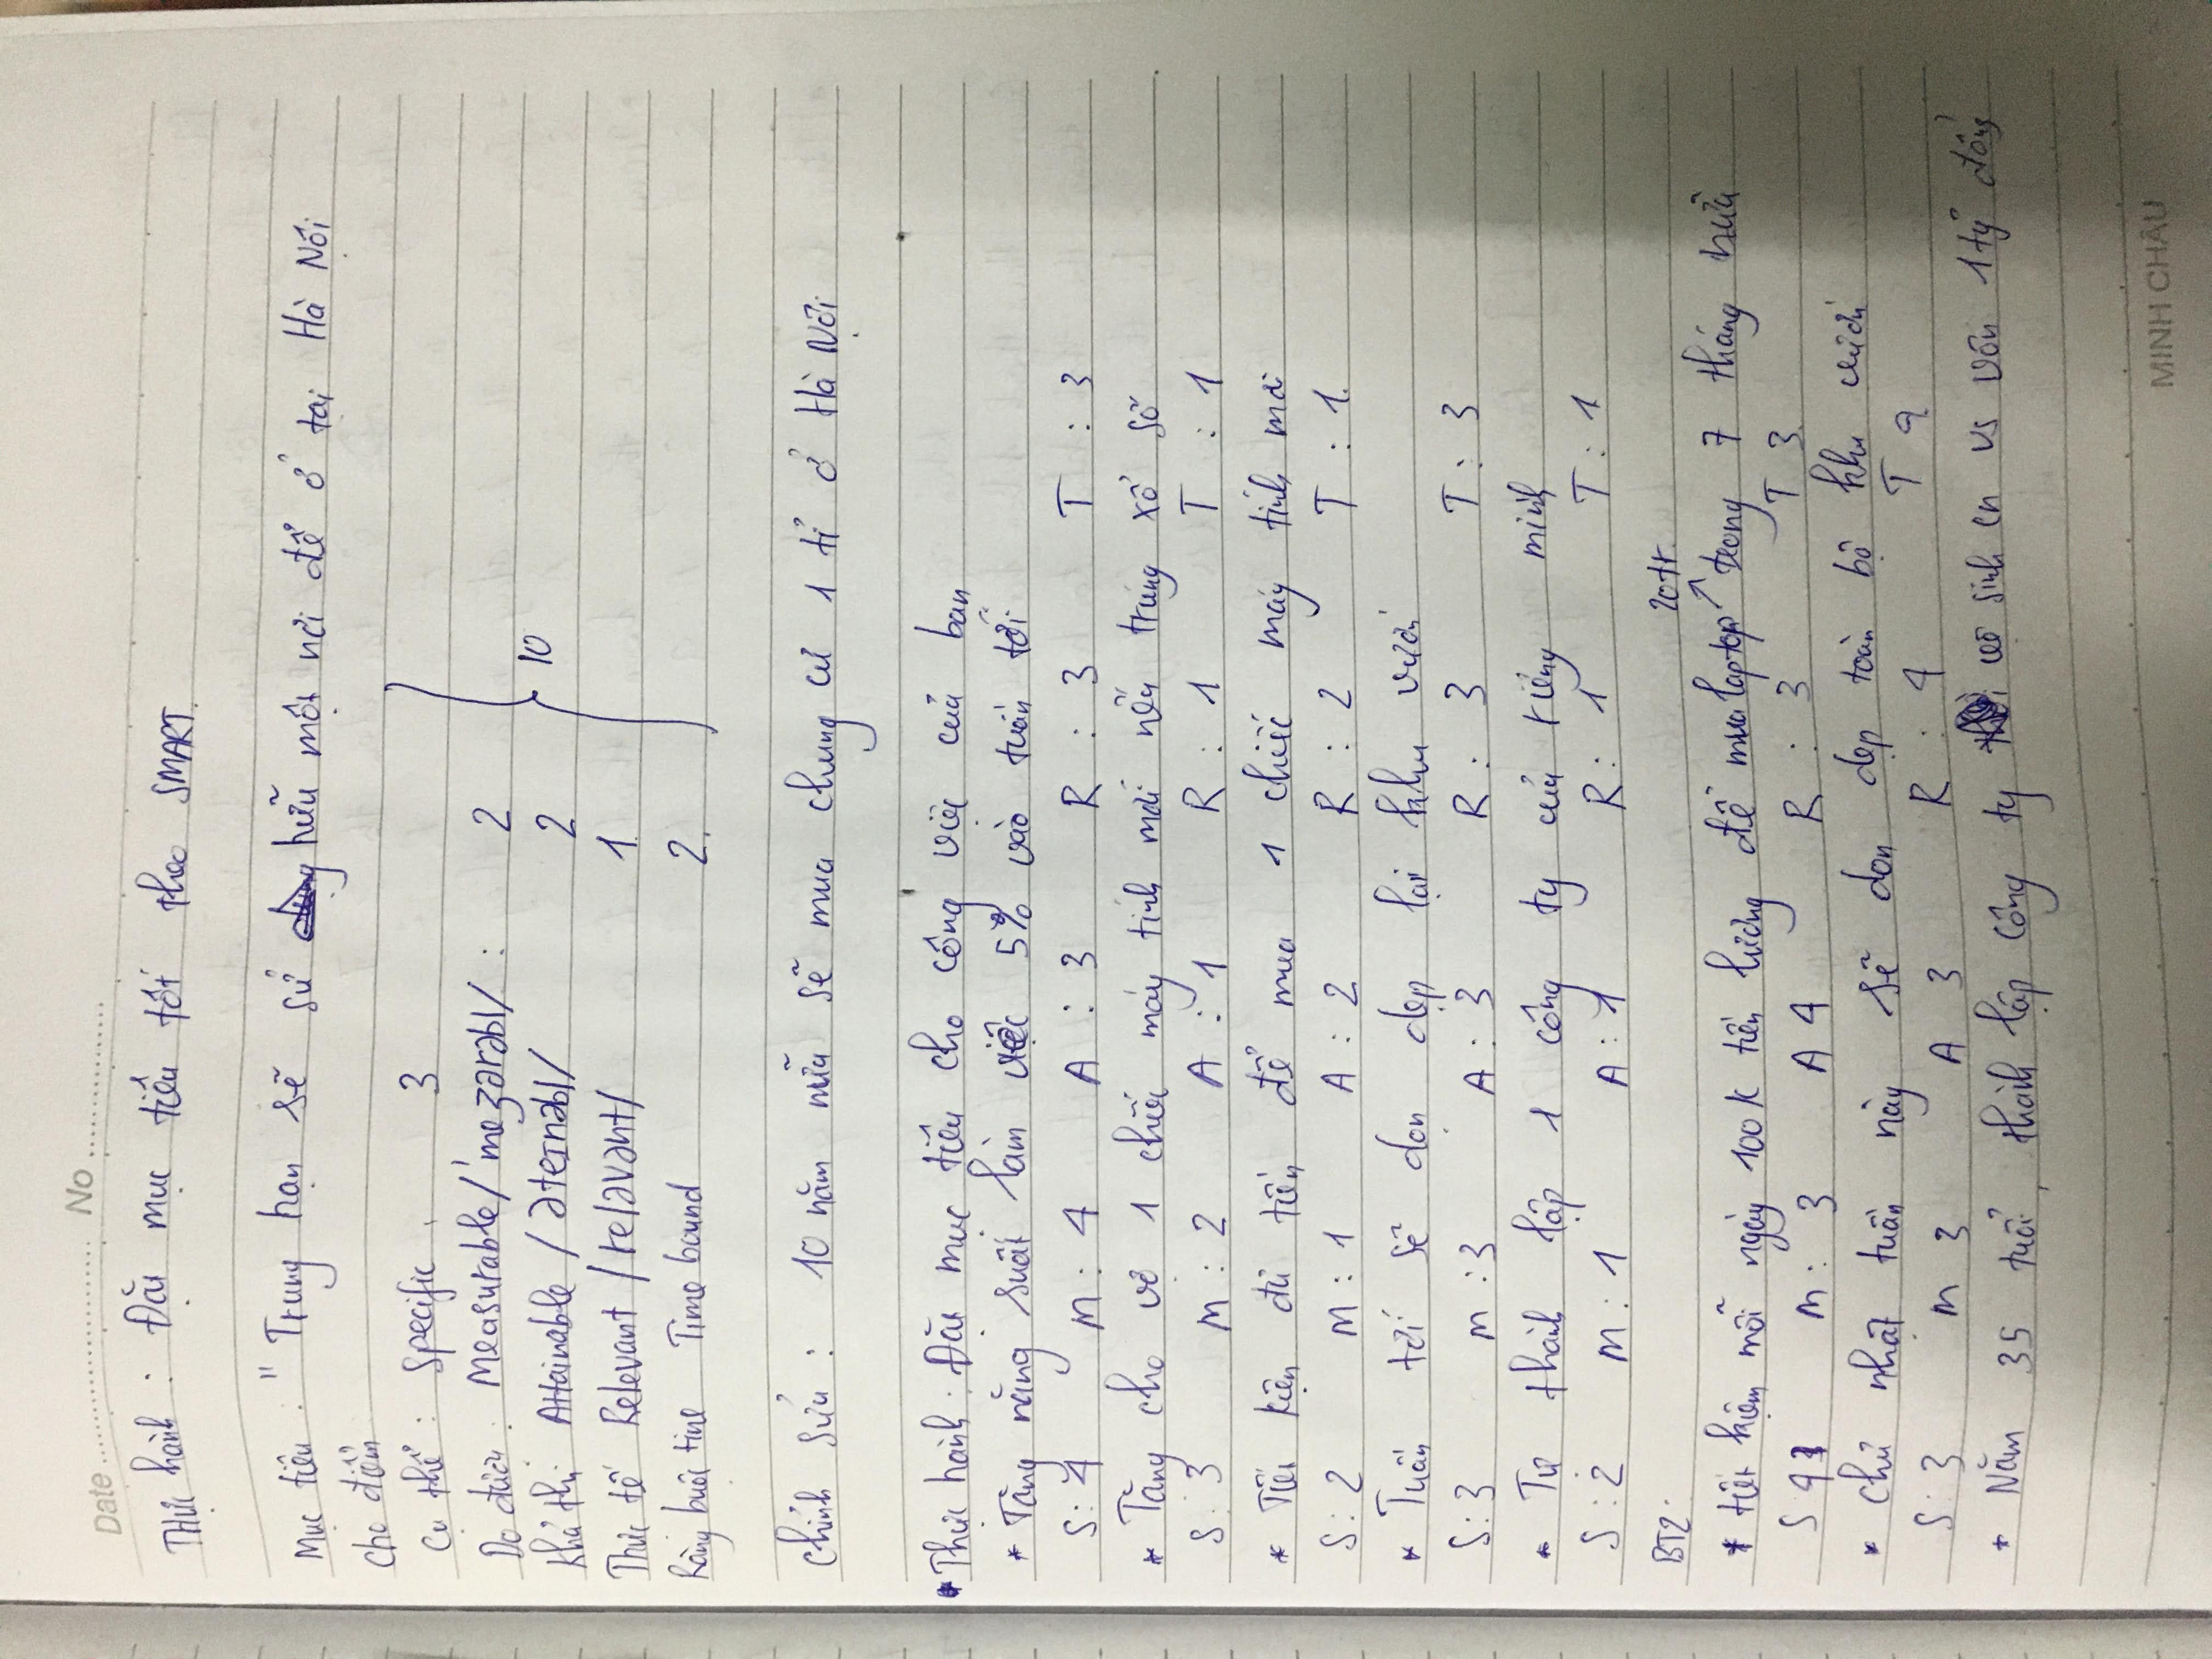 Date ........................ No ................
Thực hành : Đặt mục tiêu tốt theo SMART.
Mục tiêu : " Trung hạn sẽ sử hữu một nơi để ở tại Hà Nội
Cho điểm
Cụ thể : Specific . 3
Đo được : Measurable /'meʒərəbl/ : 2
Khả thi Attainable /əteɪnəbl/ 2
10
Thực tế Relevant /reləvənt/ 1.
Ràng buộc time Time bound 2.
Chỉnh sửa : 10 năm nữa sẽ mua chung cư 1 tỉ ở Hà Nội
* Thực hành : Đặt mục tiêu cho công việc của bạn
* Tăng năng suất làm việc 5% vào tuần tới
S : 4 M : 4 A : 3 R : 3 T : 3
* Tặng cho vợ 1 chiếc máy tính mới nếu trúng xổ số
S : 3 M : 2 A : 1 R : 1 T : 1
* Tiết kiện đủ tiền để mua 1 chiếc máy tính mới
S : 2 M : 1 A : 2 R : 2 T : 1.
* Tuần tới sẽ dọn dẹp lại khu vườn
S : 3 M : 3 A : 3 R : 3 T : 3
* Tự thành lập 1 công ty của riêng mình
S : 2 M : 1 A : 1 R : 1 T : 1
BT2 :
20tr.
* tiết kiệm mỗi ngày 100K tiền lương để mua laptop ↗ trong 7 tháng nữa
S 4 M : 3 A 4 R : 3 T 3.
* Chủ nhật tuần này sẽ dọn dẹp toàn bộ khu vườn
S : 3 M 3 A 3 R : 4 T
* Năm 35 tuổi, thành lập công ty vệ sinh cn vs vốn 1 tỷ đồng
MINH CHÂU